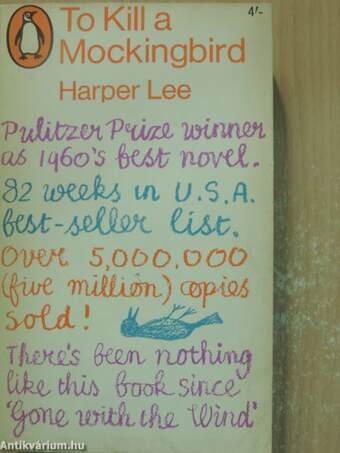 To Kill a
4/-
Mockingbird
Harper Lee
Pulitzer Prize winner
as 1960's best novel.
82 weeks in U.S.A.
best-seller list.
Over 5,000,000
(five million) copies
sold!
There's been nothing
like this book since
'Gone with the Wind'
Antikvárium.hu